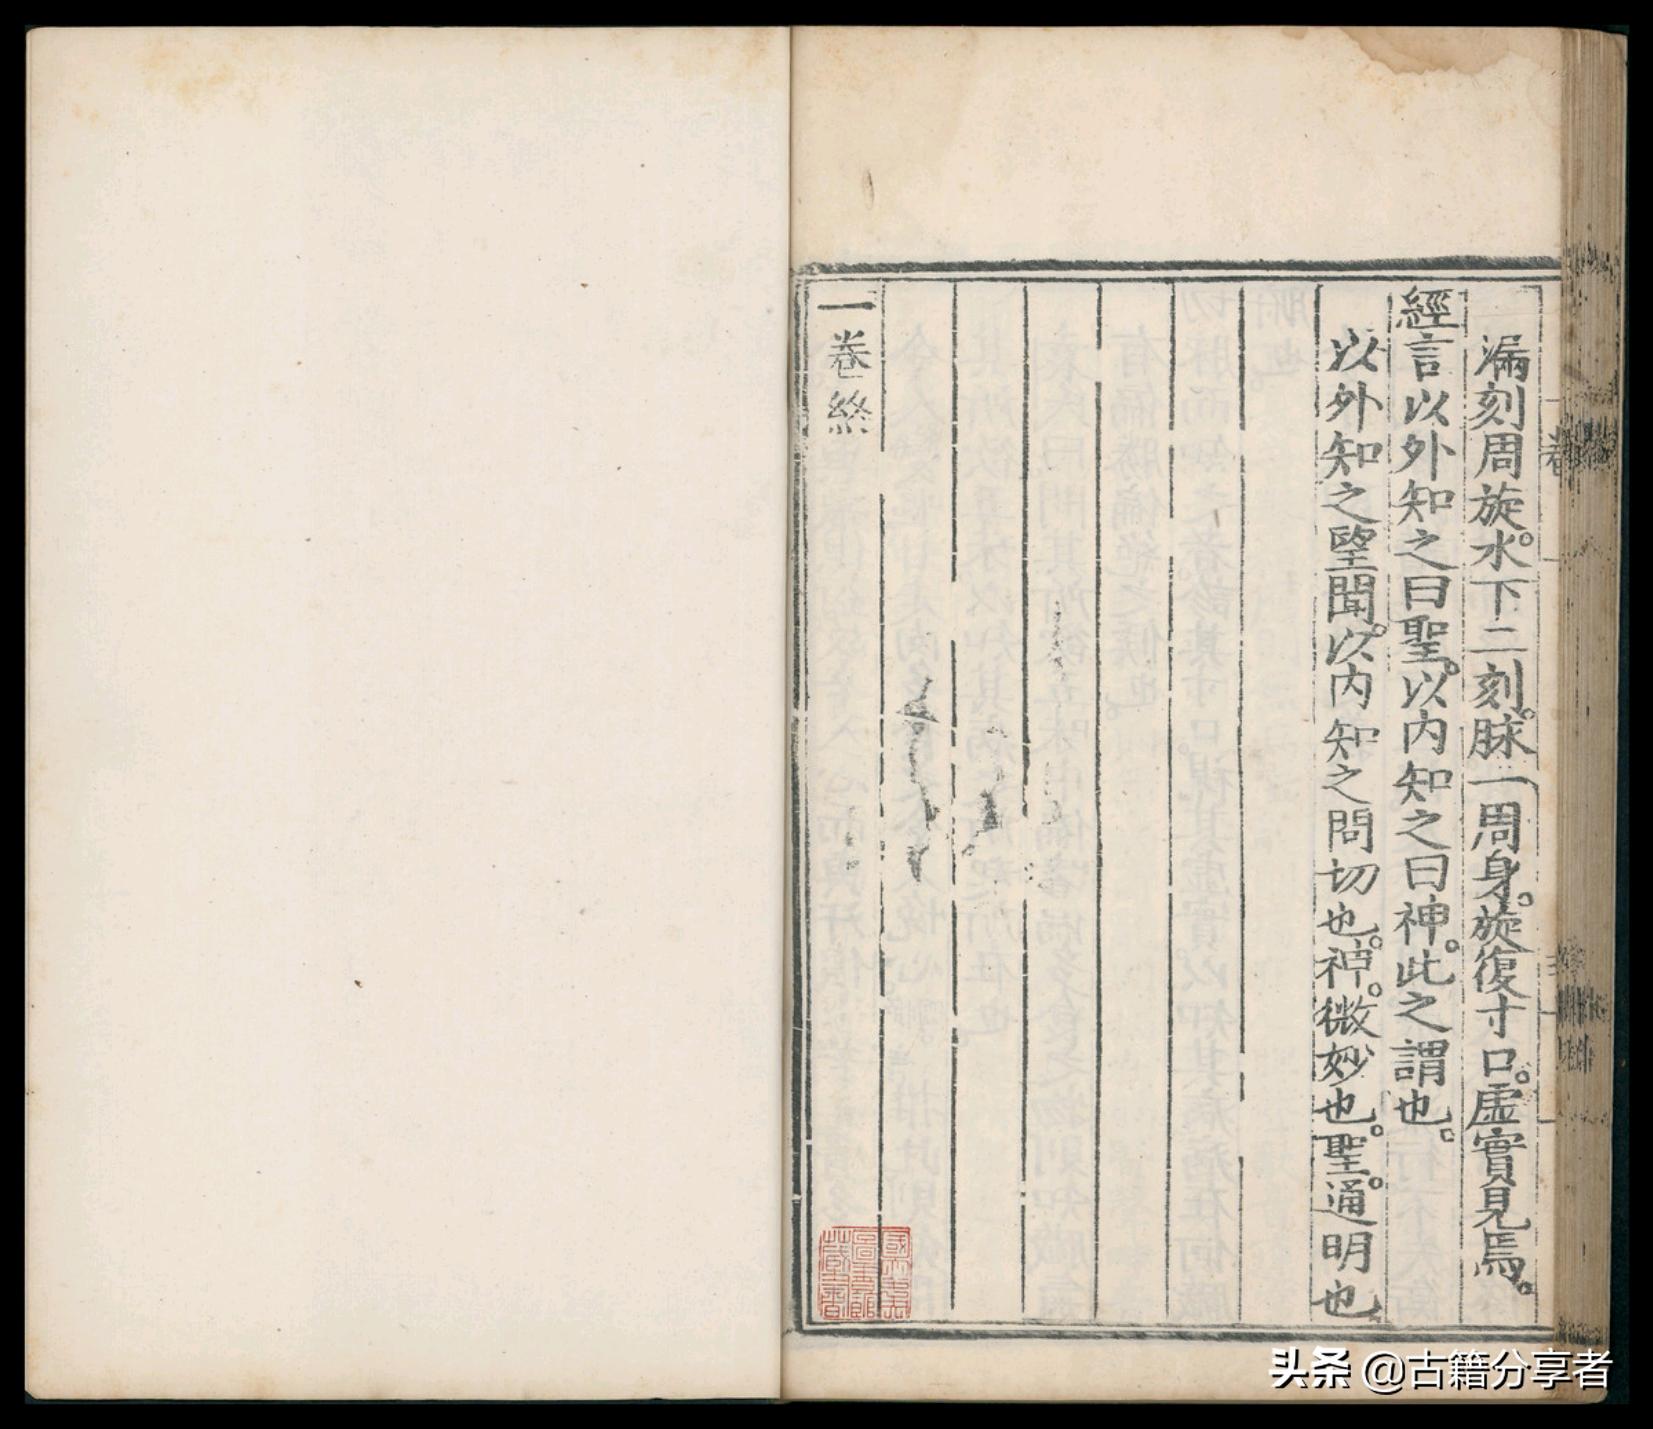 漏刻周旋。水下二刻。脉一周身。旋復寸口。虛實見焉。
經言以外知之曰聖。以内知之曰神。此之謂也。
以外知之望聞。以内知之問切也。神。微妙也。聖。通明也
一卷終
頭条 @古籍分享者